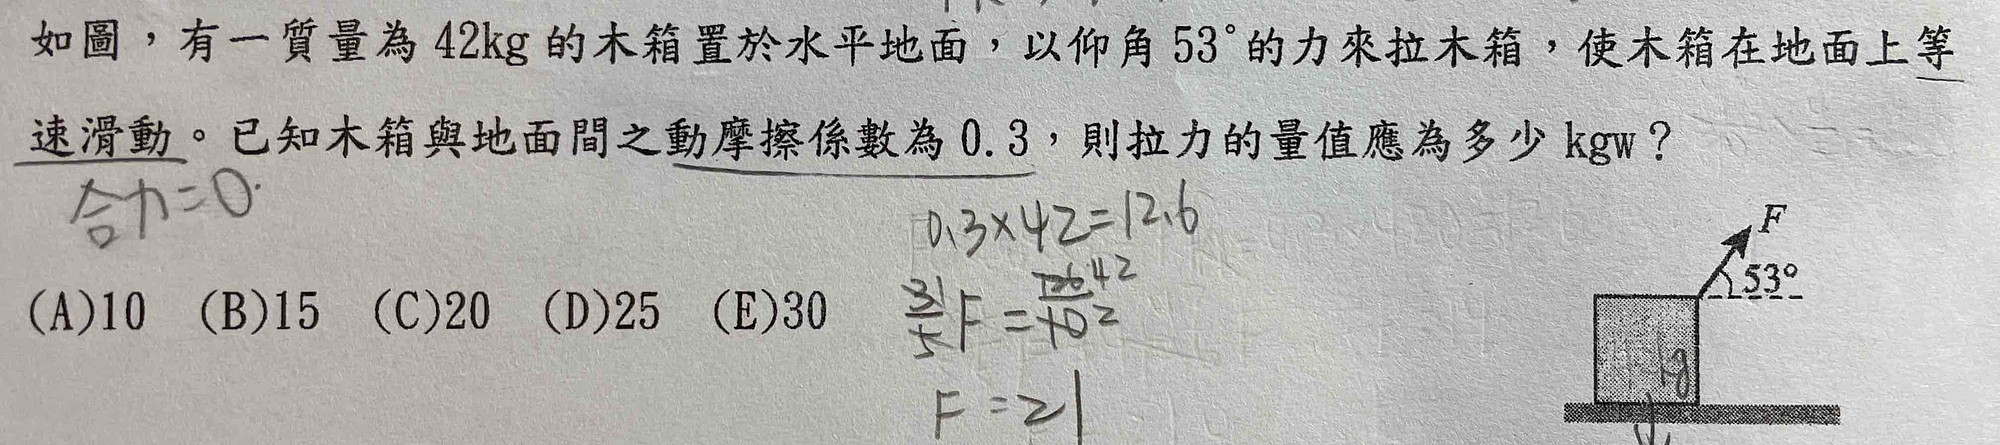 如圖，有一質量為 42kg 的木箱置於水平地面，以仰角 53°的力來拉木箱，使木箱在地面上等
速滑動。已知木箱與地面間之動摩擦係數為 0.3，則拉力的量值應為多少 kgw？
合力=0.
0.3×42=12.6
(A)10 (B)15 (C)20 (D)25 (E)30
F =
F =21
F
53°